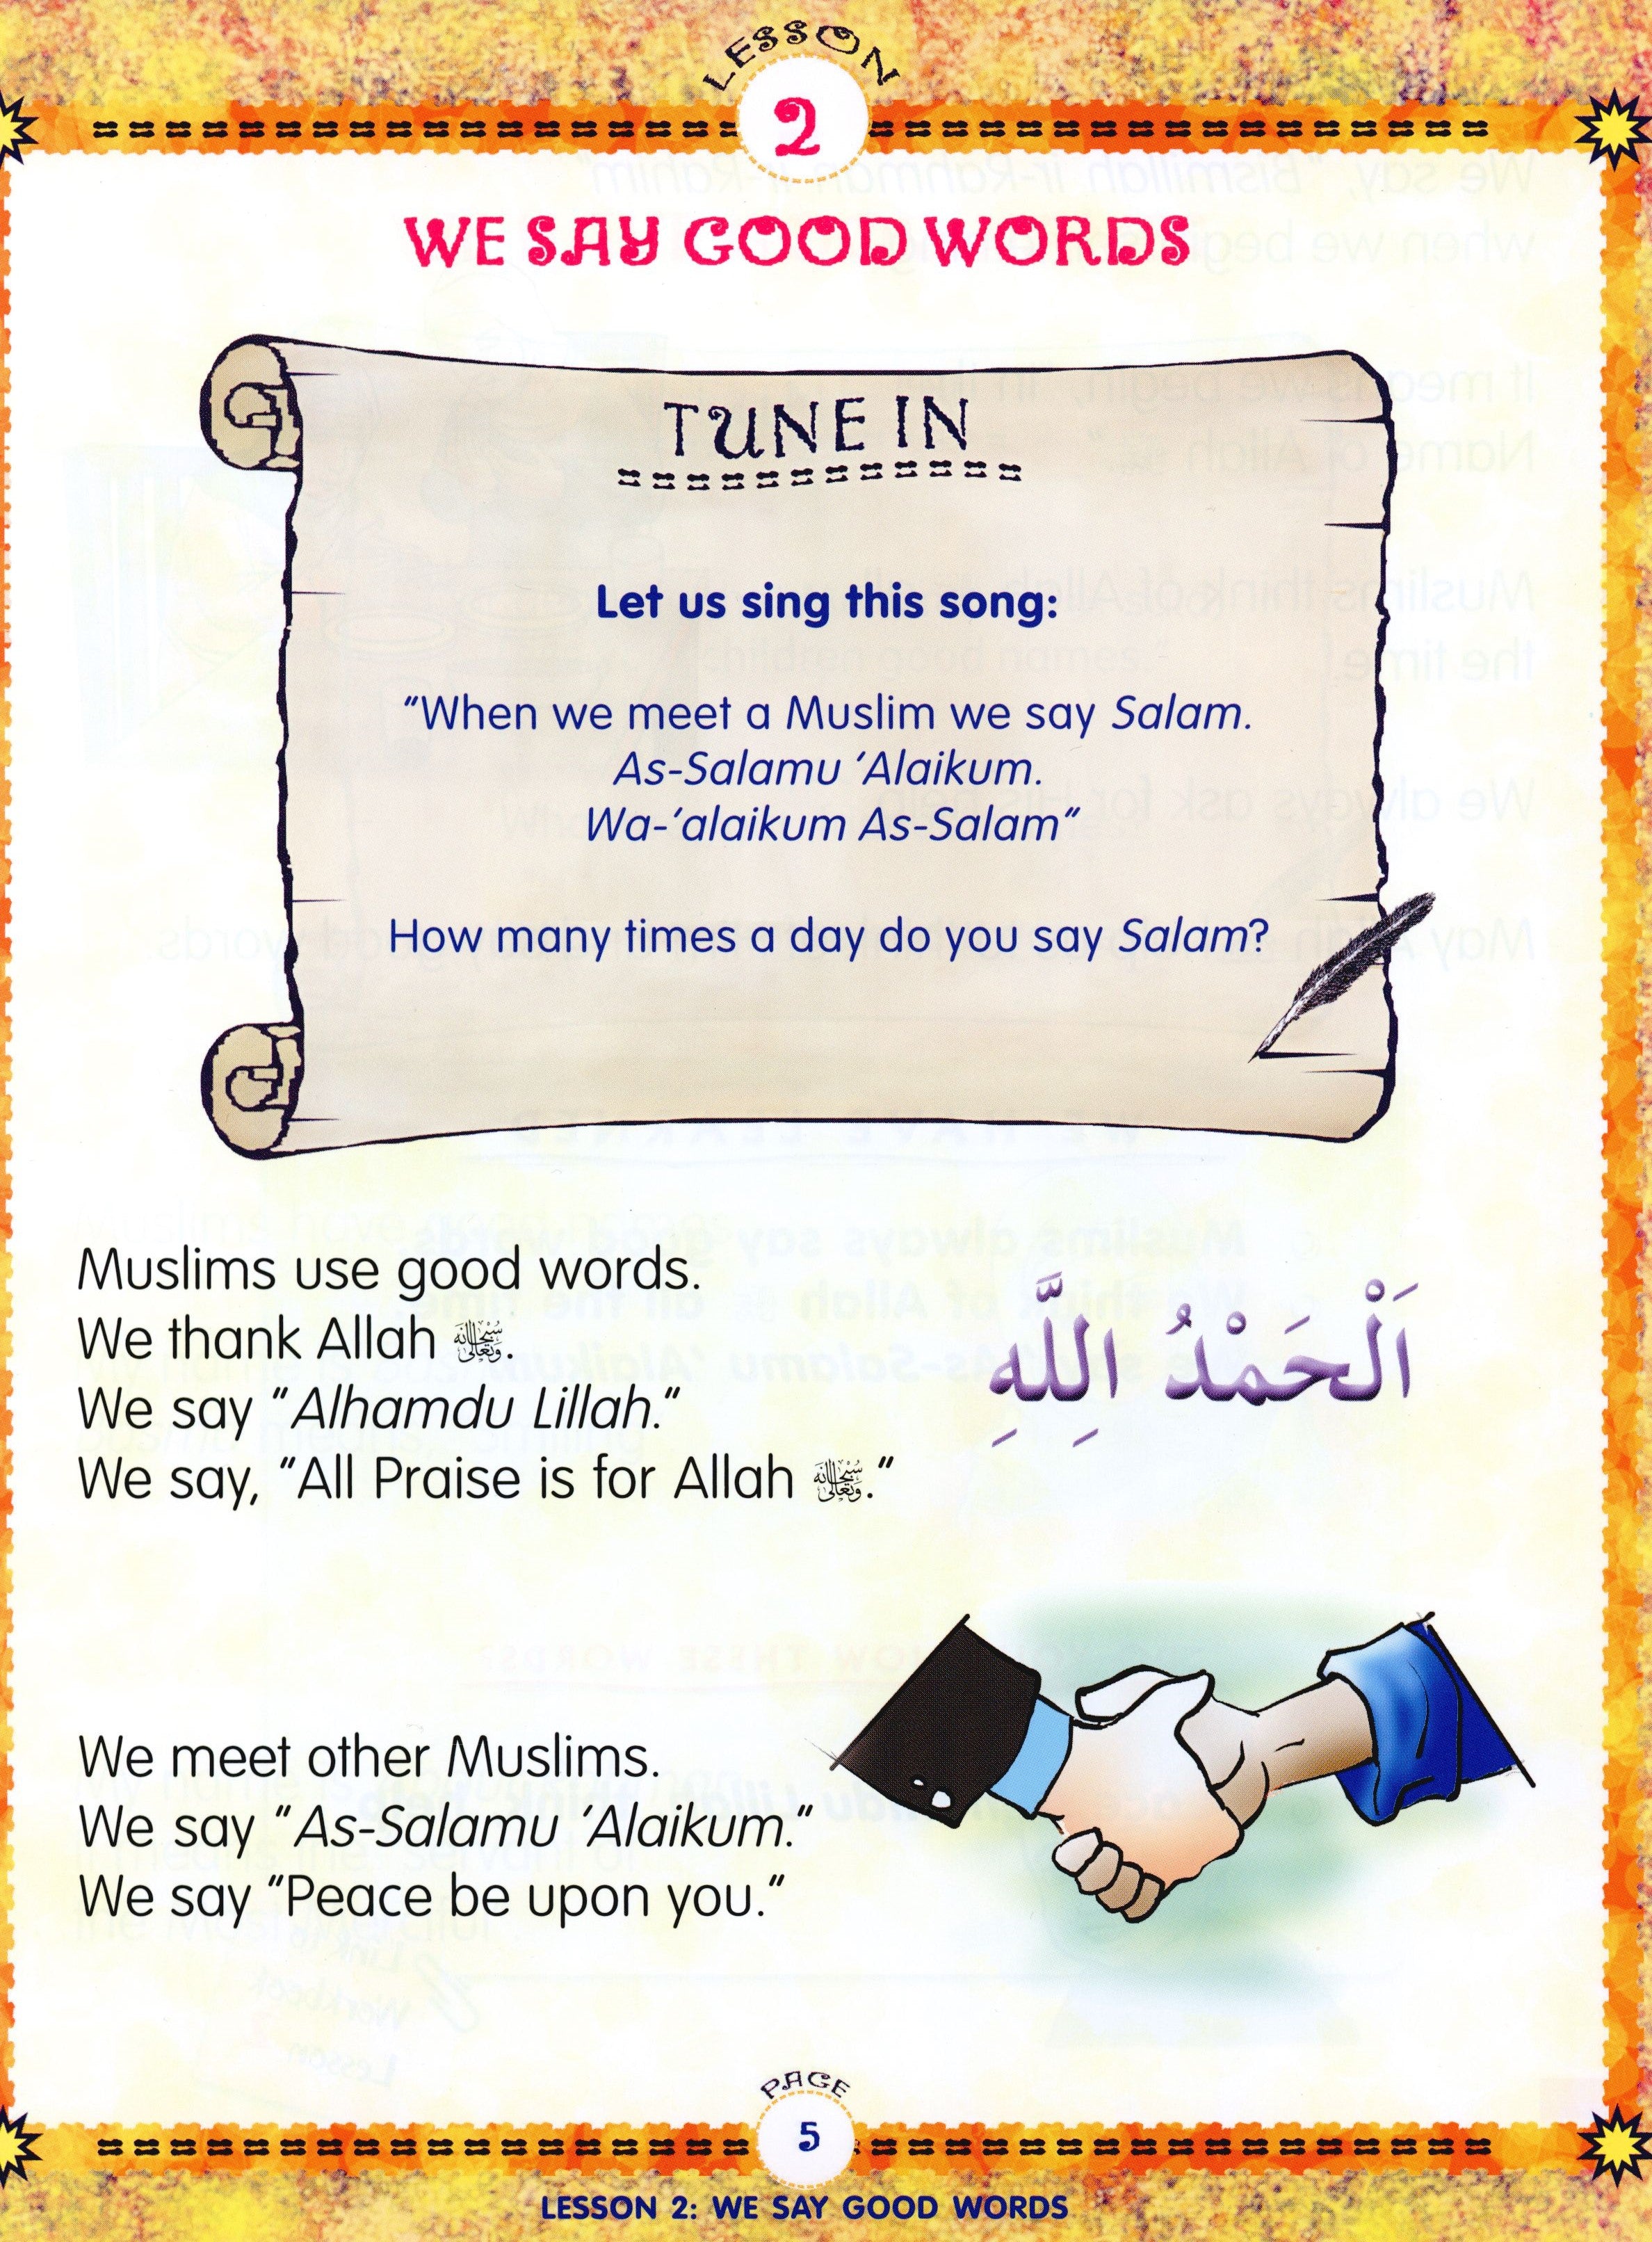 LESSON
2
WE SAY GOOD WORDS
TUNE IN
Let us sing this song:
"When we meet a Muslim we say Salam.
As-Salamu ‘Alaikum.
Wa-‘alaikum As-Salam"
How many times a day do you say Salam?
Muslims use good words.
We thank Allah سبحانه وتعالى.
We say "Alhamdu Lillah."
We say, "All Praise is for Allah سبحانه وتعالى."
اَلْحَمْدُ الِلَّهِ
We meet other Muslims.
We say "As-Salamu ‘Alaikum."
We say "Peace be upon you."
PAGE
5
LESSON 2: WE SAY GOOD WORDS